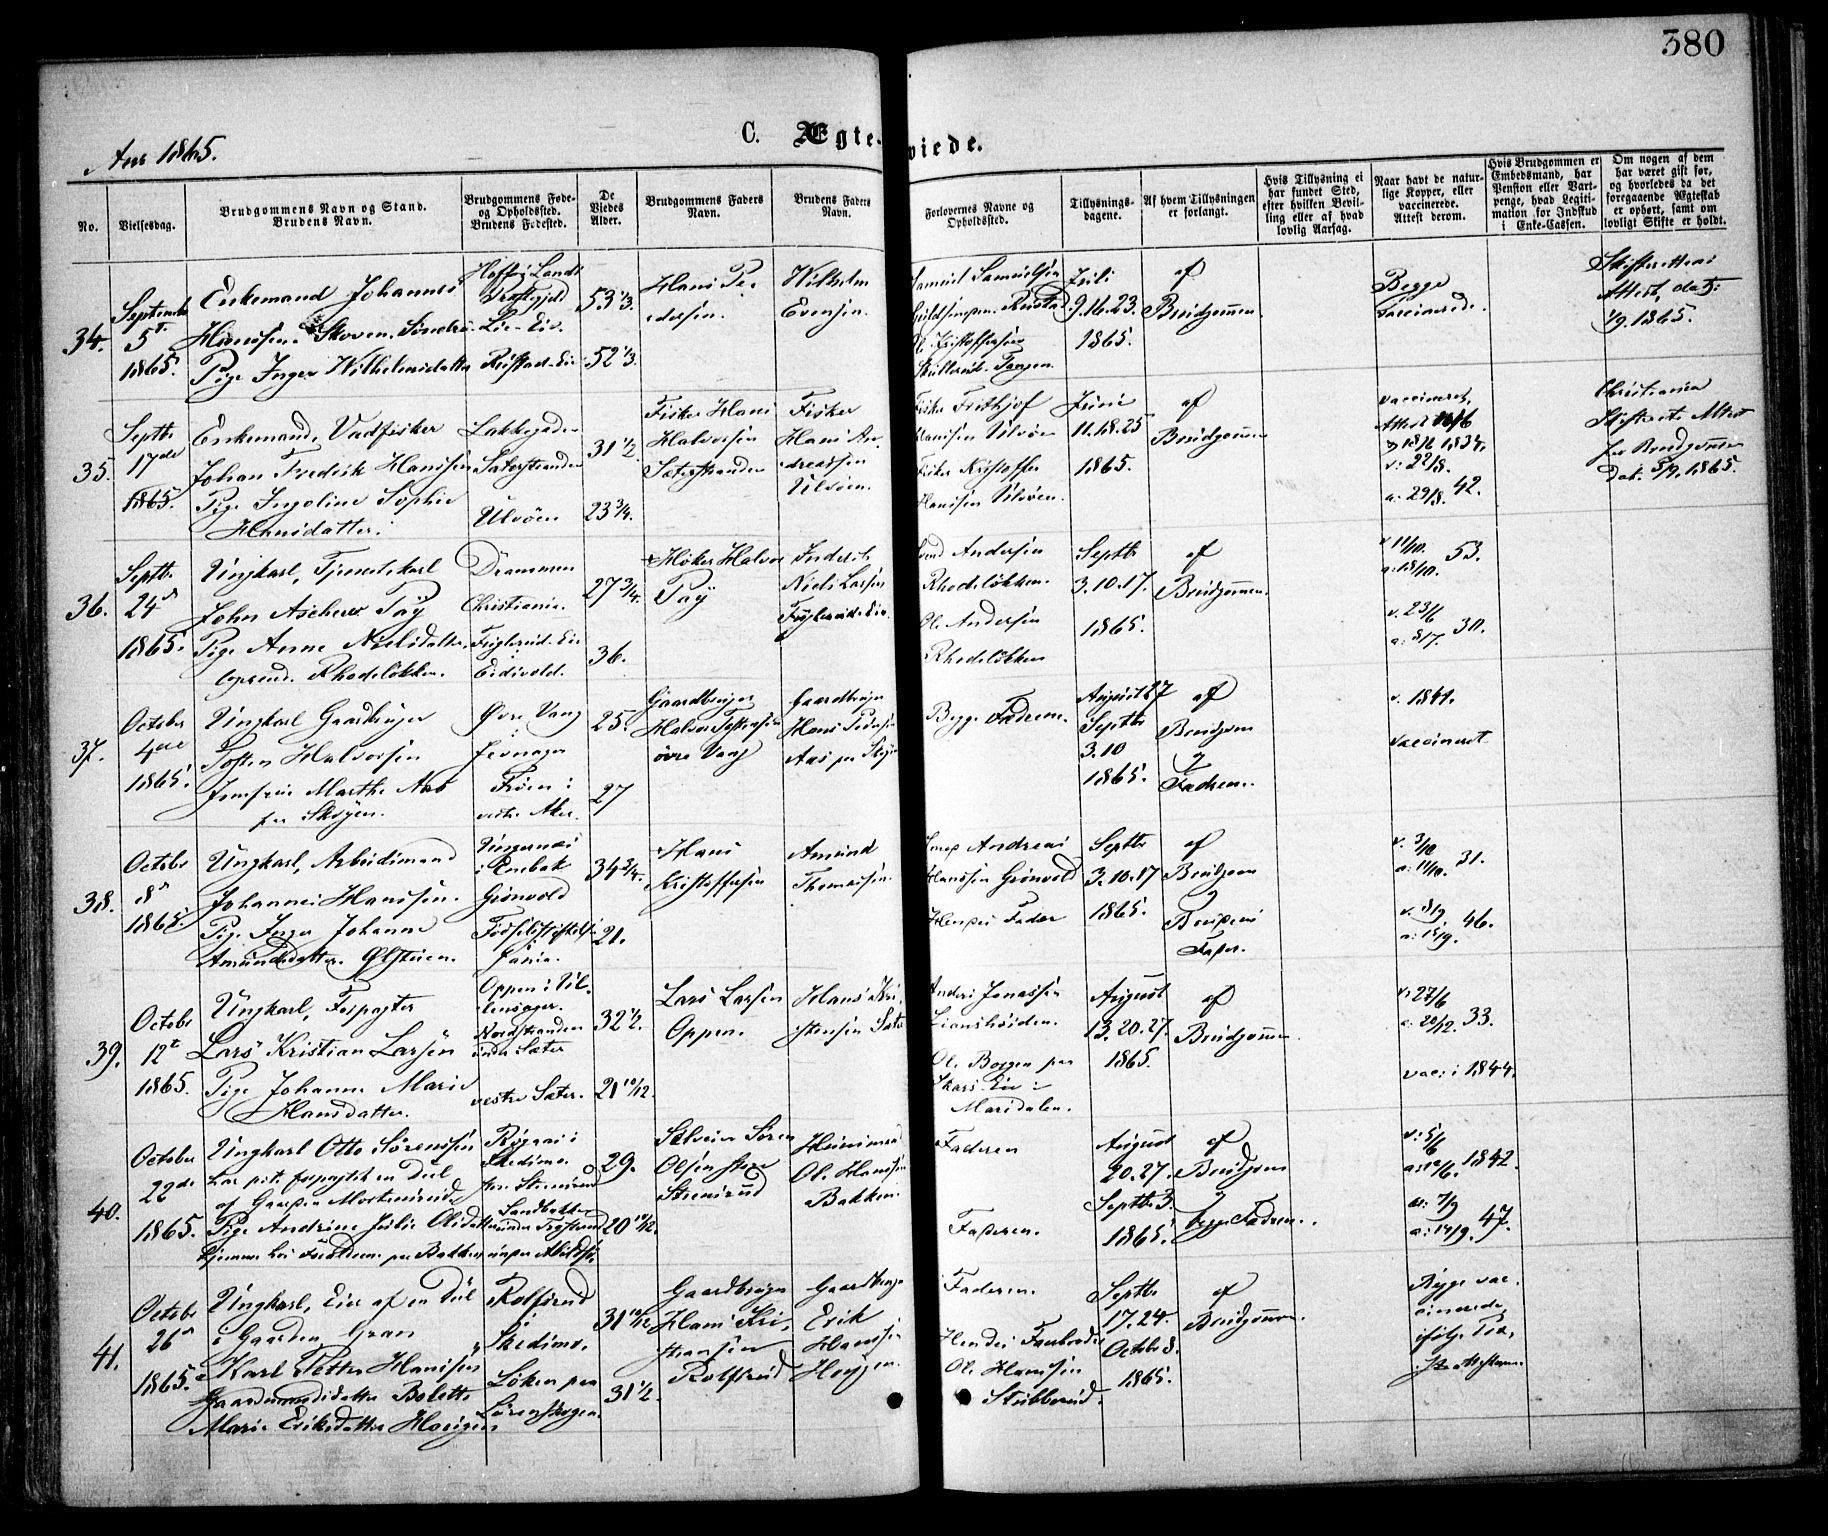 380
Aar 1865.
C. Ægte-viede.
No.
Vielsesdag.
Brudgommens Navn og Stand.
Brudens Navn.
Brudgommens Føde-
og Opholdssted.
Brudens Fødested.
De
Viedes
Alder.
Brudgommens Faders
Navn.
Brudens Faders
Navn.
Forlovernes Navne og
Opholdssted.
Tillysnings-
dagene.
Af hvem Tillysningen
er forlangt.
Hvis Tillysning ei
har fundet Sted,
efter hvilken Bevil-
ling eller af hvad
lovlig Aarsag.
Naar havt de natur-
lige Kopper, eller
vaccinerede.
Attest derom.
Hvis Brudgommen er
Embedsmand, har
Pension eller Vart-
penge, hvad Legiti-
mation for Indskud
i Enke-Cassen.
Om nogen af dem
har været gift før,
og hvorledes da det
foregaaende Ægteskab
er ophørt, samt om
lovligt Skifte er holdt.
34.
Septemb
5t
1865.
Enkemand Johannes
Hansen. Skoven. Søndre
Pige Inger Wilhelmsdatter
Præstegjeld
Lie-Eie.
Rustad-Eie
53 1/3
52 1/3
Hans Pe-
dersen.
Wilhelm
Evensen.
Samuel Samuelsen
Rustad.
Ol. Kristoffersen
Tangen.
Juli
9.16.23.
1865.
af
Brudgommen.
Begge
vaccinerede.
Skifterettens
Attest, dat:
1/9. 1865.
35.
Septbr
17de
1865.
Enkemand, Vadfisker
Johan Fredrik Hansen
Pige Ingoline Sophie
Hansdatter.
Lakkegaden
Sæterstranden
Ulvøen
31 1/2
23 3/4.
Fisker Hans
Halvorsen
Sæterstranden
Fisker
Hans An-
dreassen
Ulvøen.
Fisker Frithjof
Hansen Ulvøen
Fisker Kristoffer
Hansen Ulvøen.
Juni
11.18.25
1865.
af
Brudgommen
vaccineret,
Attest 18/6
1834.
v: 22/8.
a: 29/8. 42.
Christiania
Skifteret. Attest
for Brudgommen
dat. 5/9. 1865.
36.
Septbr.
24de
1865.
Ungkarl, Tjenestekarl
John Ascher Pay
Pige Anne Nielsdatter
Opsund. Rhodeløkken.
Drammen
Christiania.
Fuglerud-Eie
Eidsvold.
27 3/4.
36.
Høker Halvor
Pay
Inderst
Niels Larsen
Fuglerud-Eie
Svend Andersen
Rhodeløkken.
Ol. Andersen
Rhodeløkken
Septbr
3.10.17.
1865.
af
Brudgommen.
v 11/10.
a: 18/10. 53.
v. 23/6
a: 8/7. 30.
37.
October
4de
1865.
Ungkarl Gaardbruger
Torsten Halvorsen
Jomfrue Marthe Aas
fra Skøyen.
Øvre Vang
Jevnager
Frøen i
vestre Aker.
25.
27
Gaardbruger
Halvor Torstensen
øvre Vang
Gaardbruger
Hans Pedersen
Aas paa Skøyen
Begge Fædrene.
August 27
Septbr
3.10
1865.
af
Brudgom
og
Fædrene.
v. 1841.
vaccineret
38.
October
8de
1865.
Ungkarl, Arbeidsmand
Johannes Hansen
Pige Inger Johanne
Amundsdatter. Østeien.
Ungernæs
i Enebak
Grønvold
Fødselsstiftelsen
34 3/4.
21.
Hans
Kristoffersen
Amund
Thomassen.
Andreas
Hanssen Grønvold
Hendes Fader
Septbr
3.10.17
1865.
af
Brudgom
og
Brudens
Fader.
v. 3/10
a: 11/10. 31.
v. 8/9.
a: 15/9. 46.
39.
October
12t
1865.
Ungkarl, Forpagter
Lars Kristian Larsen
Pige Johanne Marie
Hansdatter.
Oppen i Ul-
lensager.
Nordstranden
under Sæter
vestre Sæter.
32 1/2.
21 10/12.
Lars Larsen
Oppen.
Hans Kri-
stensen Sæter
Anders Jonassen
Lianshøiden.
Ol. Borgen paa
Skars-Eie i
Maridalen.
August
13.20.27.
1865.
af
Brudgommen.
v: 27/6
a: 20/12. 33.
vac: i 1844.
40.
October
22de
1865.
Ungkarl Otto Sørenssen
har pt. forpagtet en Deel
af Gaarden Mortensrud
Pige Andrine Julie Olsdatter
hjemme hos Forældrene paa Bakken
Røgaas i
Skedsmo.
Store Stensrud
Sandbakken
29.
20 11/12.
Selveier Søren
Olsen store
Stensrud
Huusmand
Ol. Hanssen
Bakken.
Faderen
Faderen.
August
20.27.
Septbr 3.
1865.
af
Brudgom
og
begge Fædrene.
v: 5/6
a: 12/6. 1842.
v: 7/9
a: 14/9. 47.
41.
October
26de
1865.
Ungkarl, Eier af en Deel
i Gaarden Gran
Karl Petter Hanssen
Gaardmandsdatter Bolette
Marie Eriksdatter Haugen
Rolfsrud
i
Skedsmo.
Løken paa
Lørenskogen.
31 10/12
31 1/2.
Gaardbruger
Hans Kri-
stiansen
Rolfsrud
Gaardbruger
Erik
Hanssen
Haugen
Faderen.
Hendes Farbroder
Ol. Hanssen
Stubberud.
Septbr
17.24.
Octobr 8.
1865.
af
Brudgommen.
Begge vac-
cinerede,
ifølge Præ-
steattesterne.